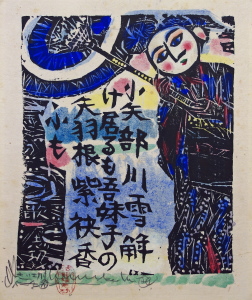 小矢部川雪解
け居るも吾妹子の
矢羽根紫袂香
ふも